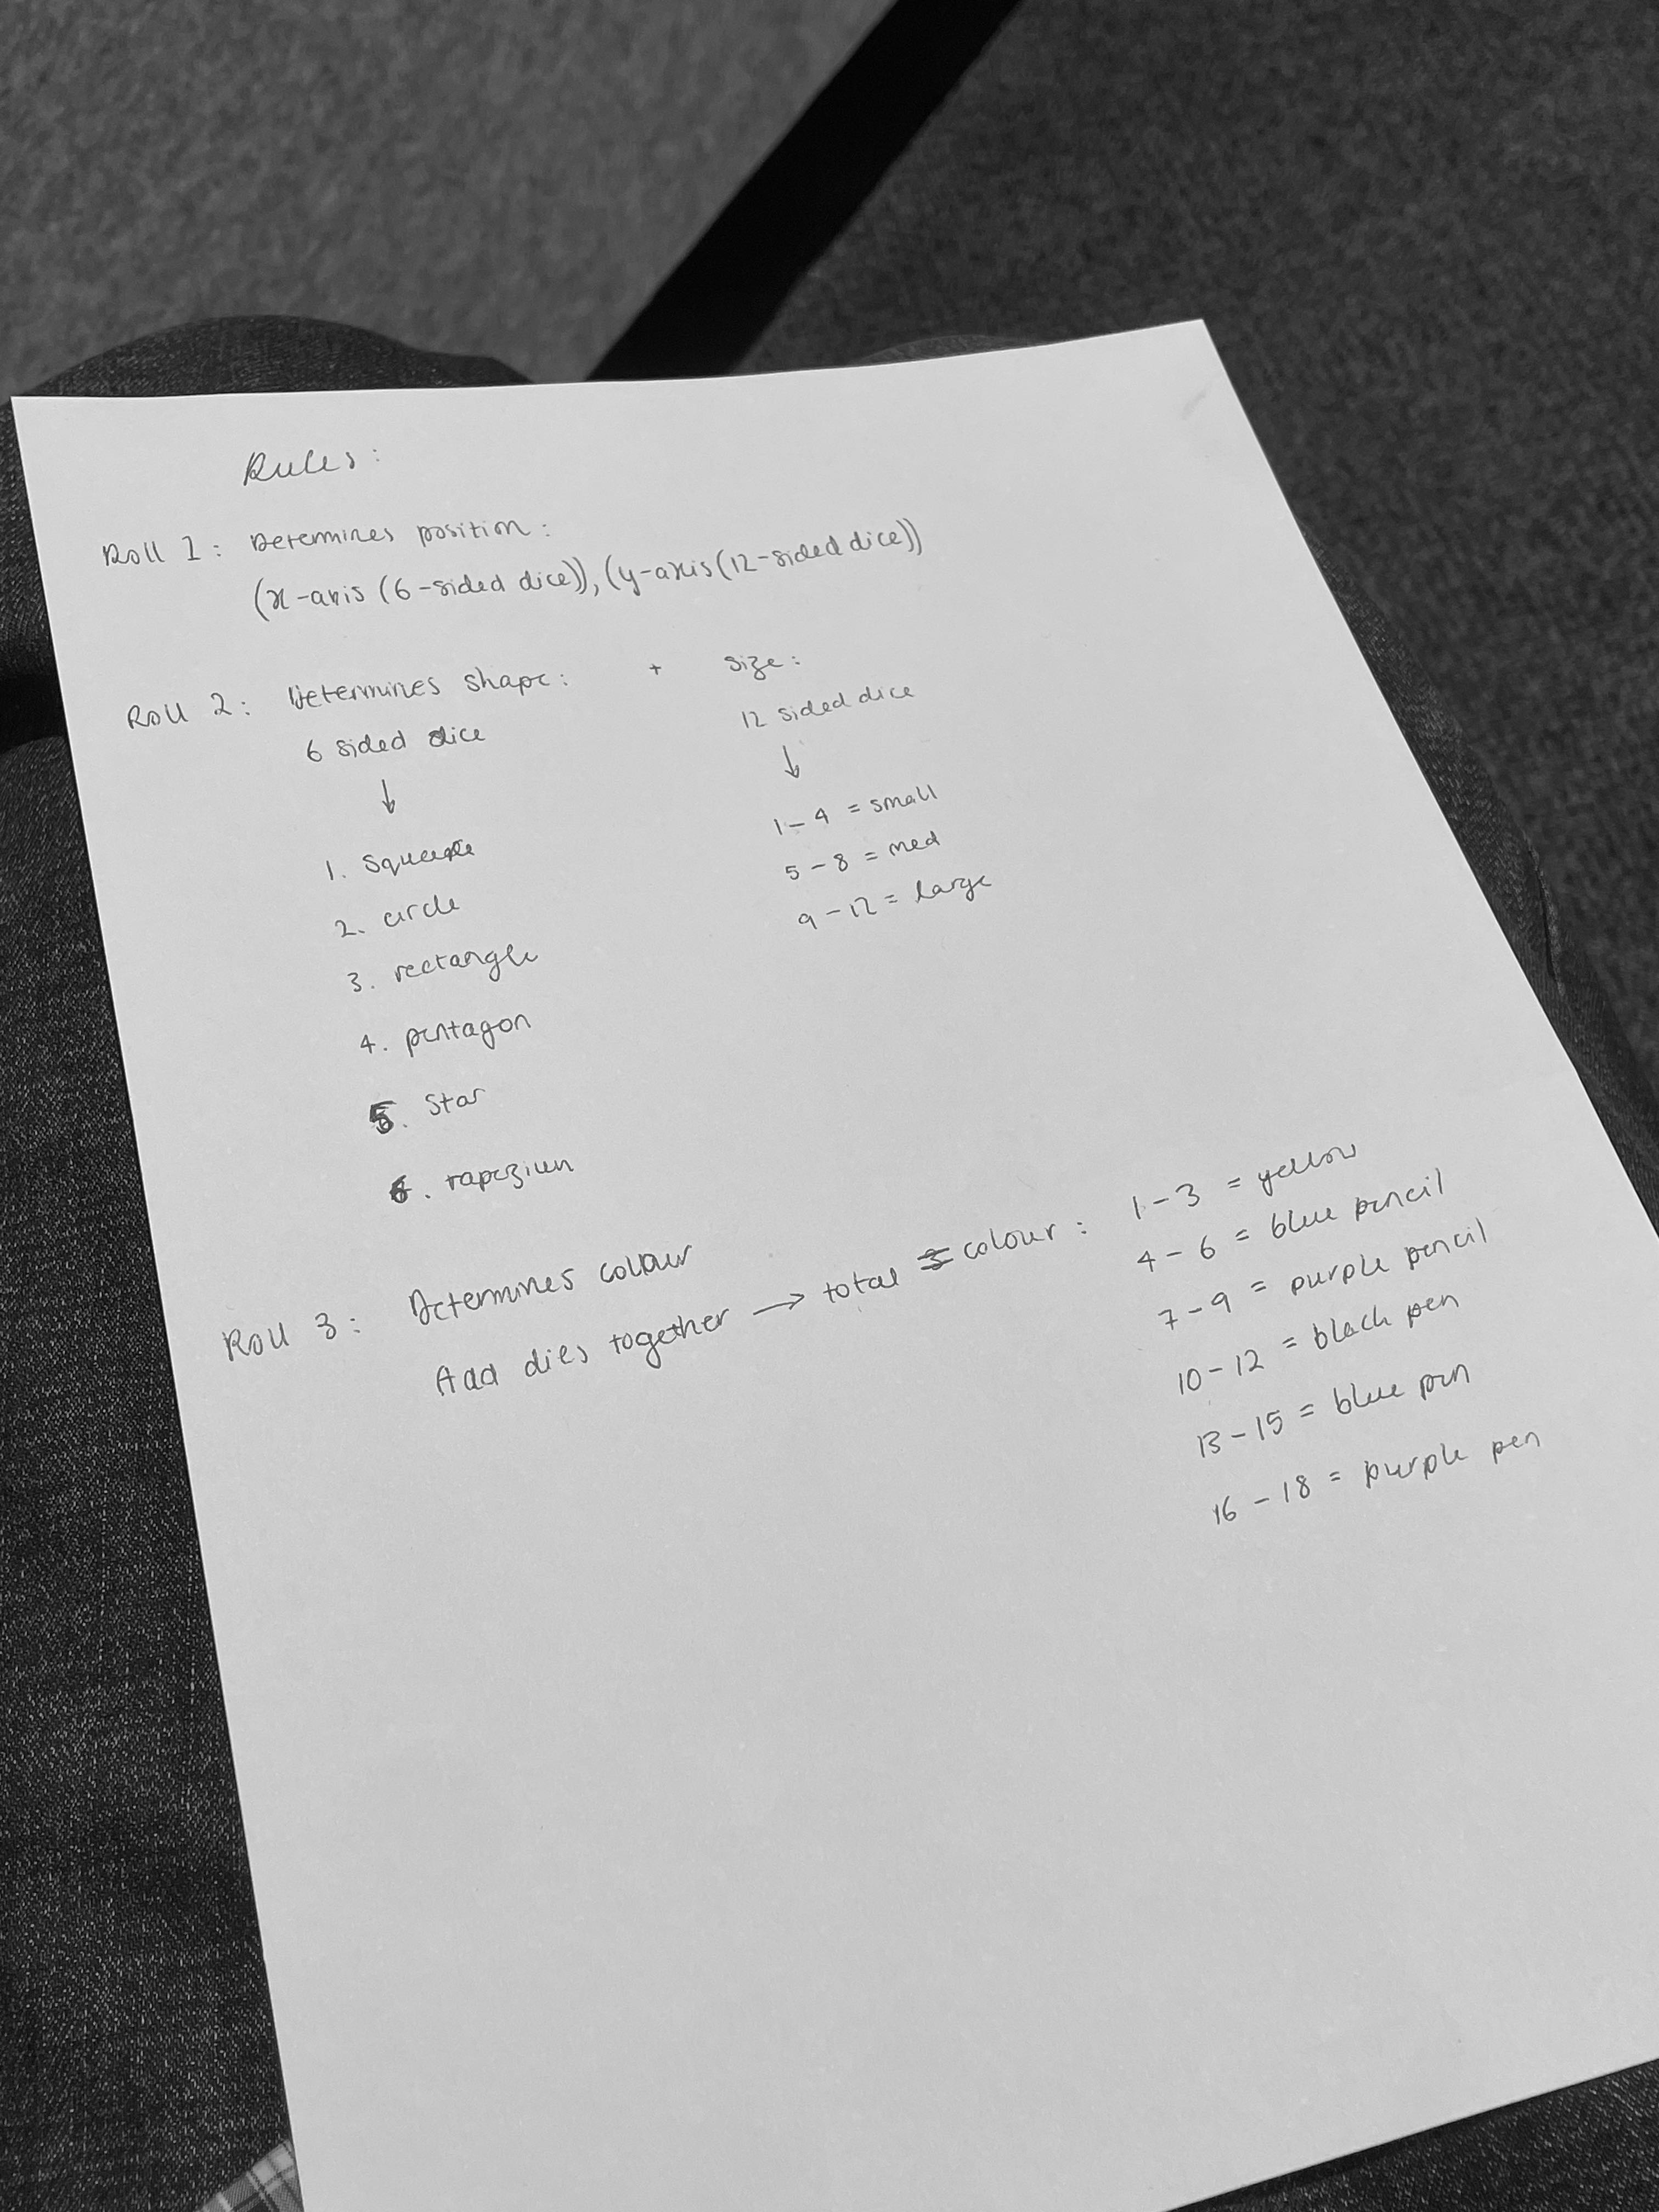 Rules:
Roll 1: Determines position:
(x-axis (6-sided dice)), (y-axis (12-sided dice))
Roll 2: Determines shape: + size:
6 sided dice
12 sided dice
↓
↓
1. Square
2. circle
3. rectangle
4. pentagon
5. Star
6. trapezium
1-4 = small
5-8 = med
9-12 = large
Roll 3: Determines colour
Add dies together → total = colour:
1-3 = yellow
4-6 = blue pencil
7-9 = purple pencil
10-12 = black pen
13-15 = blue pen
16-18 = purple pen